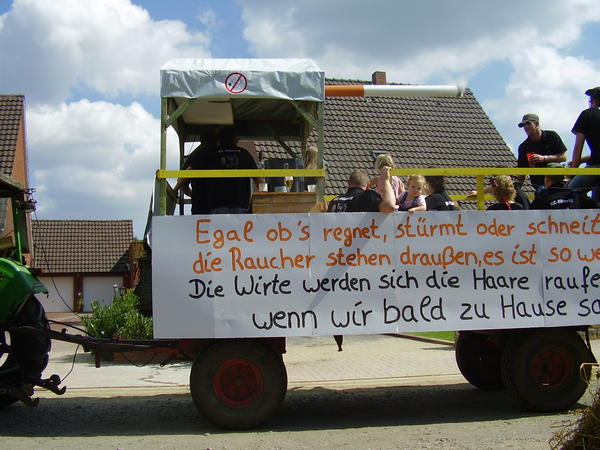 Egal ob's regnet, stürmt oder schneit
die Raucher stehen draußen, es ist so we
Die Wirte werden sich die Haare raufe
wenn wir bald zu Hause sa